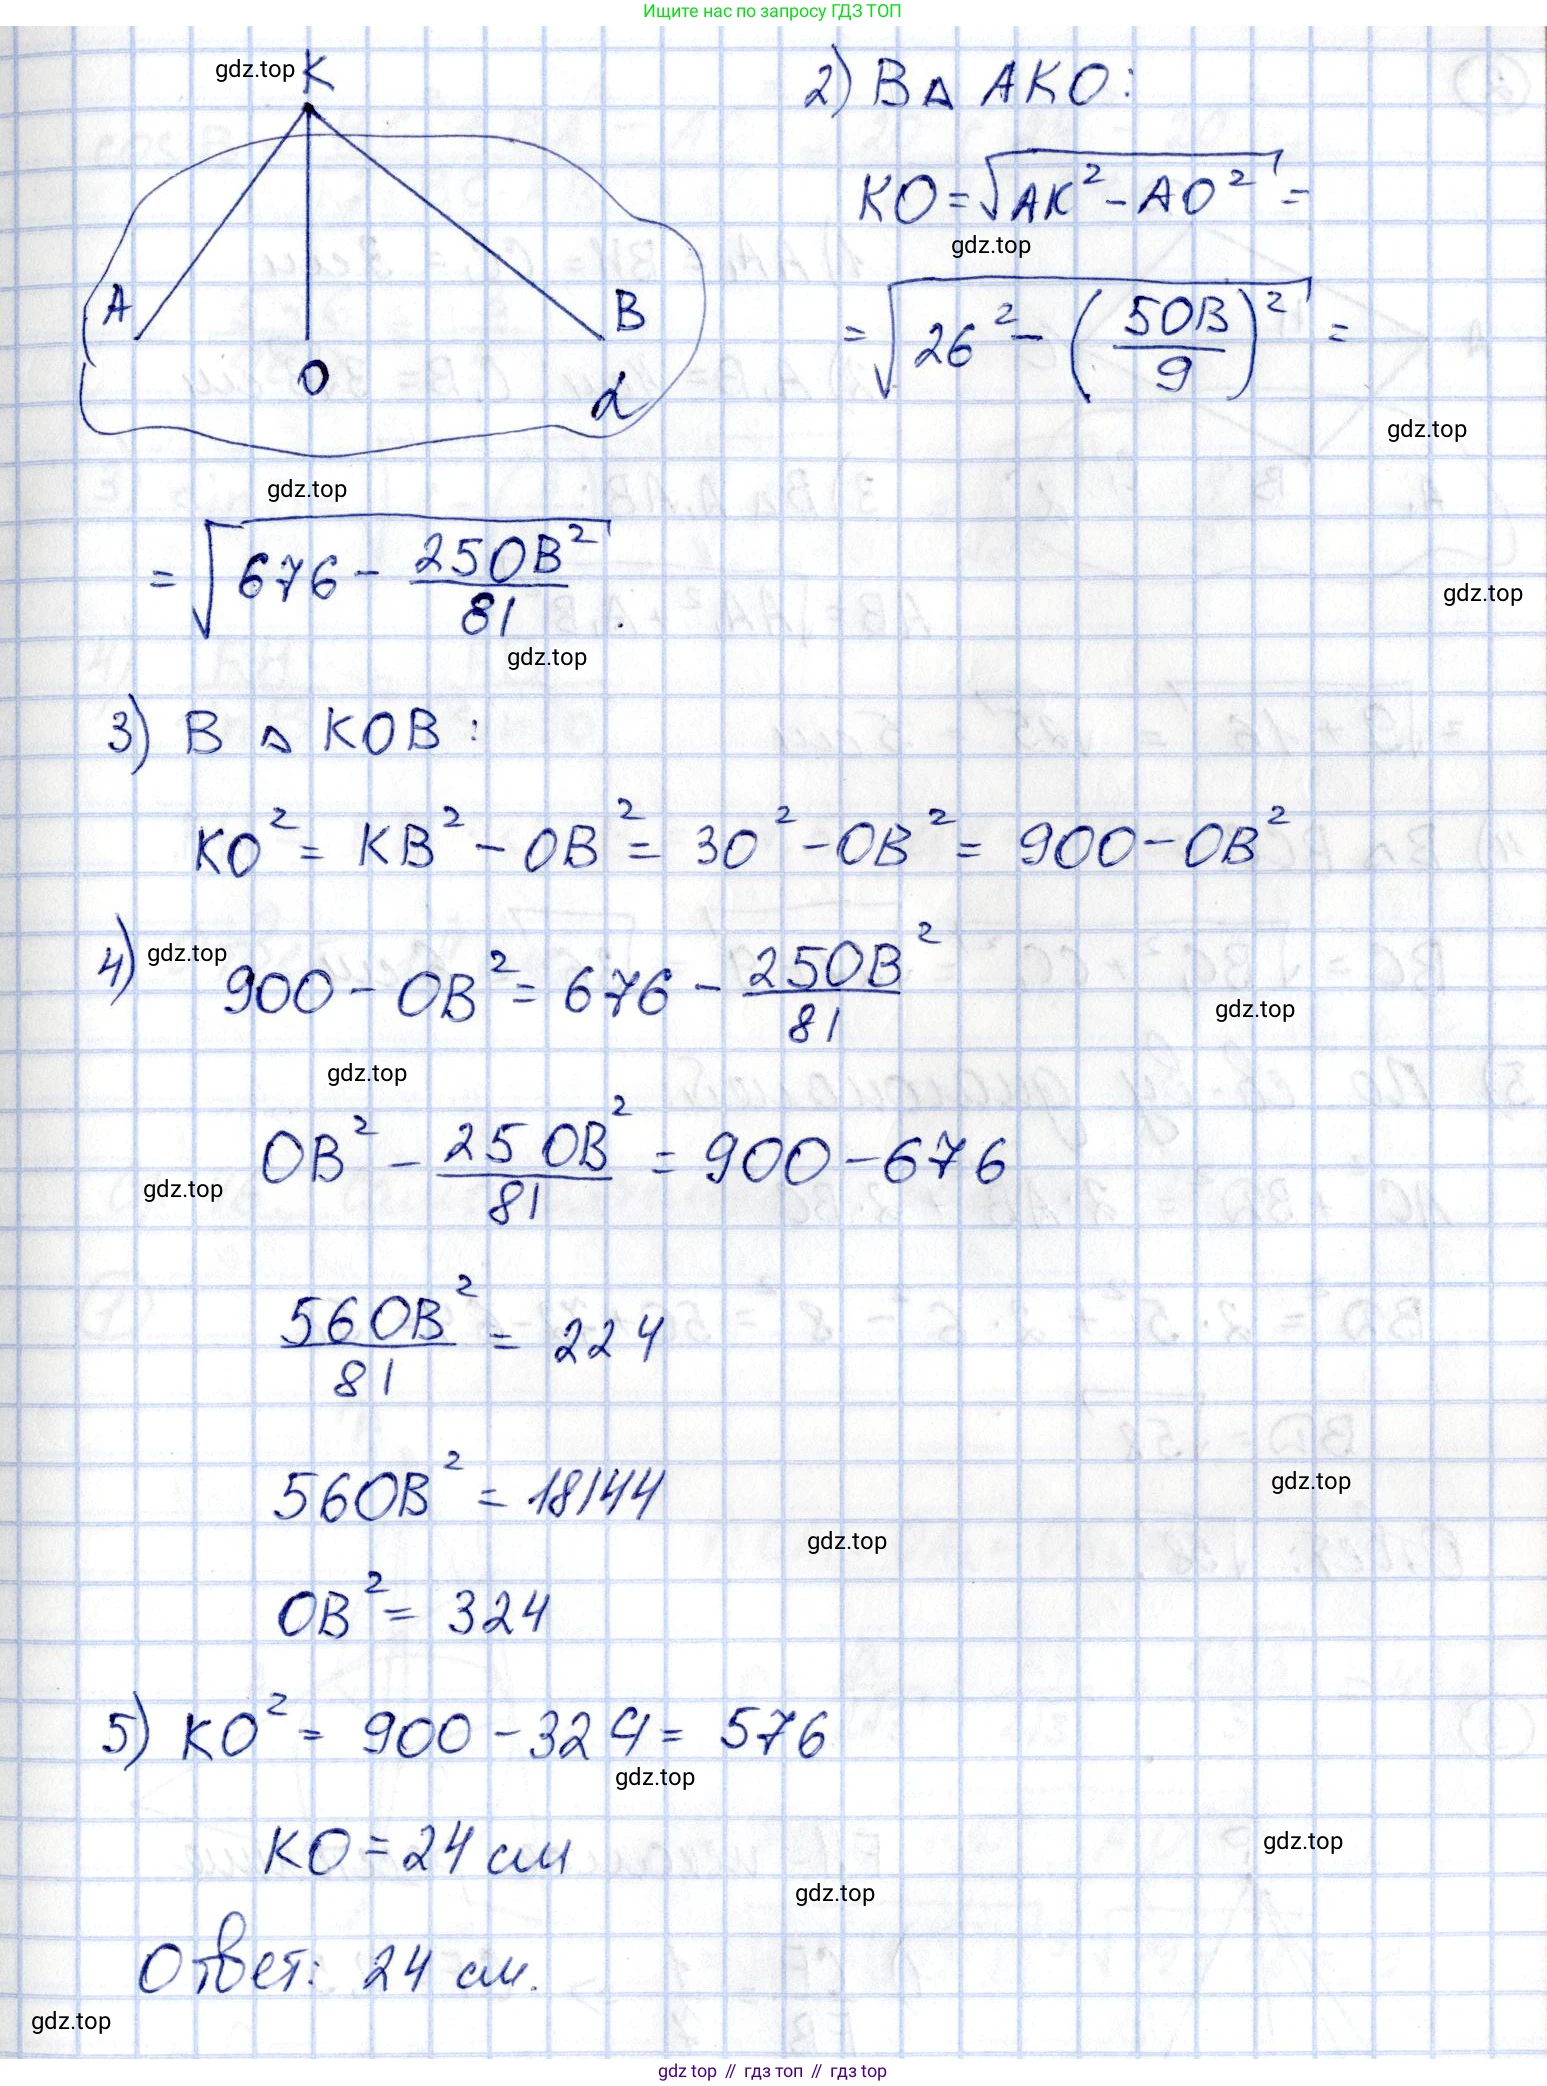 Ищите нас по запросу ГДЗ ТОП
gdz.top
K
A
B
O
α
gdz.top
2) В △ AKO:
KO = √(AK² - AO²) =
gdz.top
= √(26² - (5OB/9)²) =
gdz.top
= √(676 - 25OB²/81).
gdz.top
gdz.top
3) В △ KOB:
KO² = KB² - OB² = 30² - OB² = 900 - OB²
4) gdz.top
900 - OB² = 676 - 25OB²/81
gdz.top
gdz.top
OB² - 25OB²/81 = 900 - 676
gdz.top
56OB²/81 = 224
56OB² = 18144
gdz.top
gdz.top
OB² = 324
5) KO² = 900 - 324 = 576
gdz.top
KO = 24 см
gdz.top
gdz.top
Ответ: 24 см.
gdz.top
gdz top // гдз топ // gdz.top